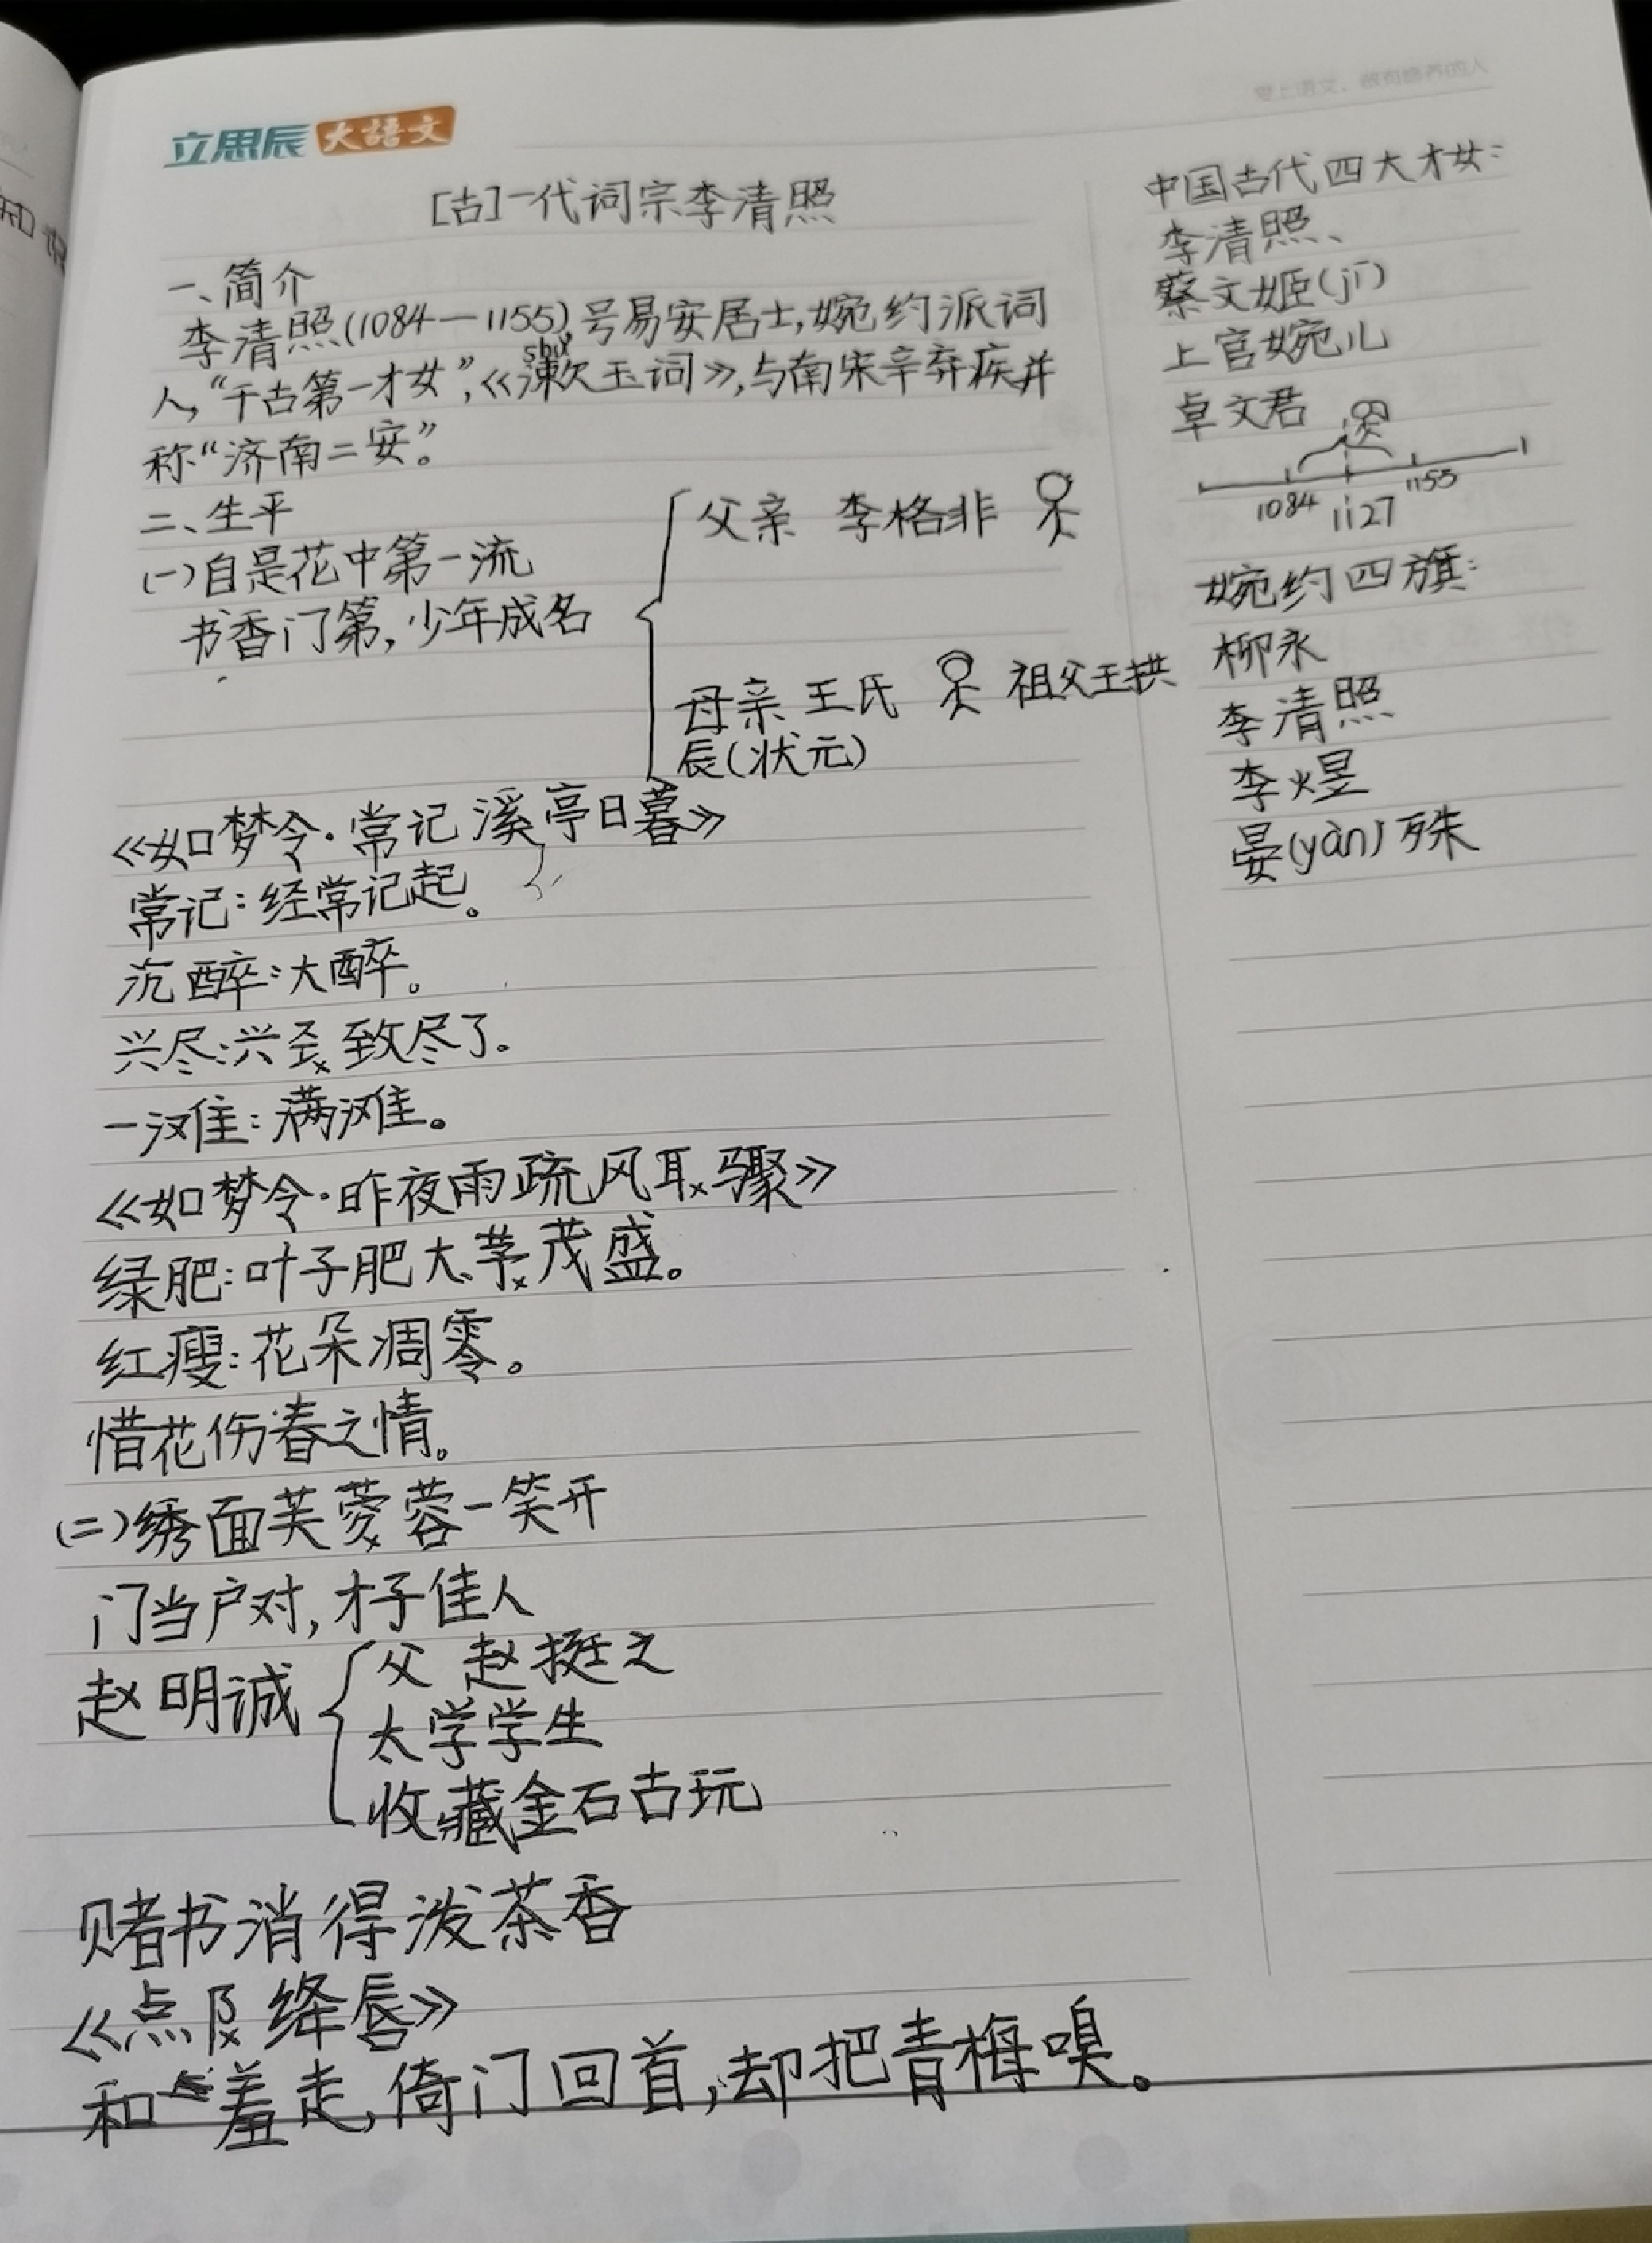 立思辰大语文
[古]一代词宗李清照
一、简介
李清照(1084—1155),号易安居士,婉约派词
人,“千古第一才女”,《漱玉词》,与南宋辛弃疾并
称“济南二安”。
二、生平
(一)自是花中第一流
书香门第,少年成名
父亲 李格非
母亲 王氏 祖父王拱
辰(状元)
《如梦令·常记溪亭日暮》
常记:经常记起。
沉醉:大醉。
兴尽:兴致尽了。
一滩:满滩。
《如梦令·昨夜雨疏风骤》
绿肥:叶子肥大茂盛。
红瘦:花朵凋零。
惜花伤春之情。
(二)绣面芙蓉一笑开
门当户对,才子佳人
赵明诚
父 赵挺之
太学学生
收藏金石古玩
赌书消得泼茶香
《点绛唇》
和羞走,倚门回首,却把青梅嗅。
中国古代四大才女:
李清照、
蔡文姬(jī)
上官婉儿
卓文君
1084 1127 1155
婉约四旗:
柳永
李清照
李煜
晏(yàn)殊